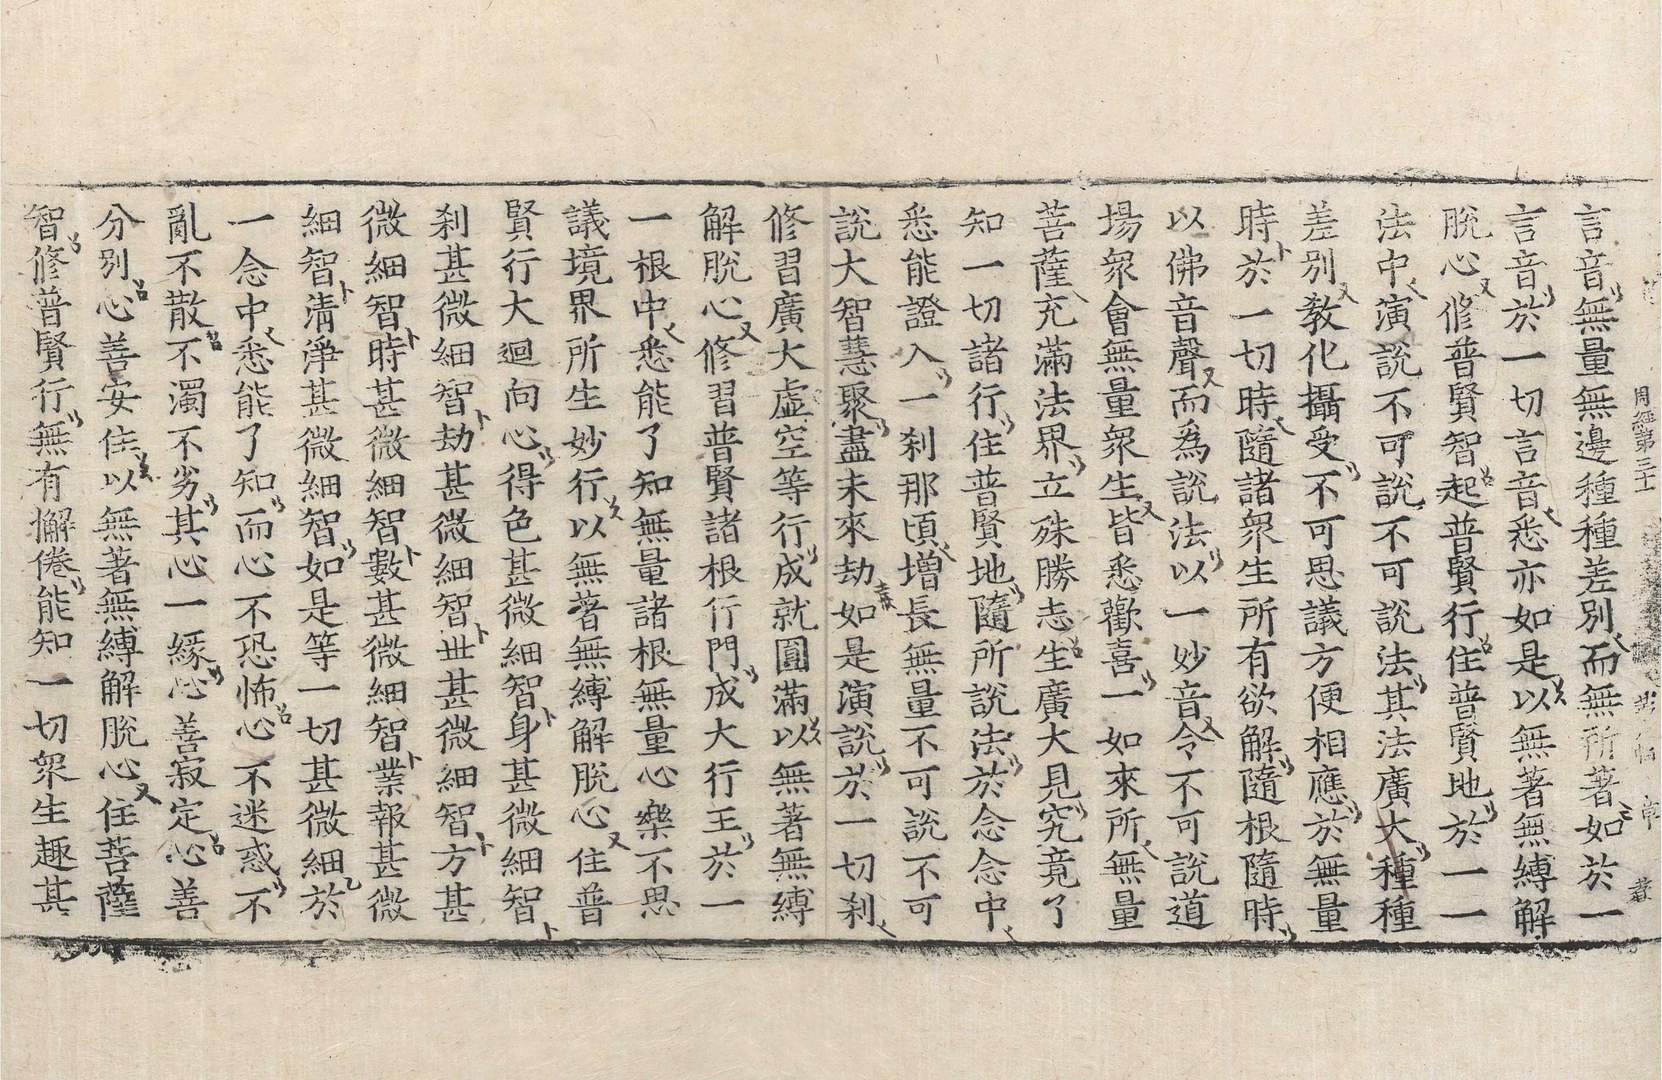 周經第三十
言音無量無邊種種差別而無所著如於一
言音於一切言音悉亦如是以無著無縛解
脫心修普賢智起普賢行住普賢地於一一
法中演說不可說不可說法其法廣大種種
差別敎化攝受不可思議方便相應於無量
時於一切時隨諸衆生所有欲解隨根隨時
以佛音聲而爲說法以一妙音令不可說道
場衆會無量衆生皆悉歡喜一如來所無量
菩薩充滿法界立殊勝志生廣大見究竟了
知一切諸行住普賢地隨所說法於念念中
悉能證入一刹那頃增長無量不可說不可
說大智慧聚盡未來劫如是演說於一切刹
修習廣大虛空等行成就圓滿以無著無縛
解脫心修習普賢諸根行門成大行王於一
一根中悉能了知無量諸根無量心樂不思
議境界所生妙行以無著無縛解脫心住普
賢行大迴向心得色甚微細智身甚微細智
刹甚微細智劫甚微細智世甚微細智方甚
微細智時甚微細智數甚微細智業報甚微
細智淸淨甚微細智如是等一切甚微細於
一念中悉能了知而心不恐怖心不迷惑不
亂不散不濁不劣其心一緣心善寂定心善
分別心善安住以無著無縛解脫心住菩薩
智修普賢行無有懈倦能知一切衆生趣甚